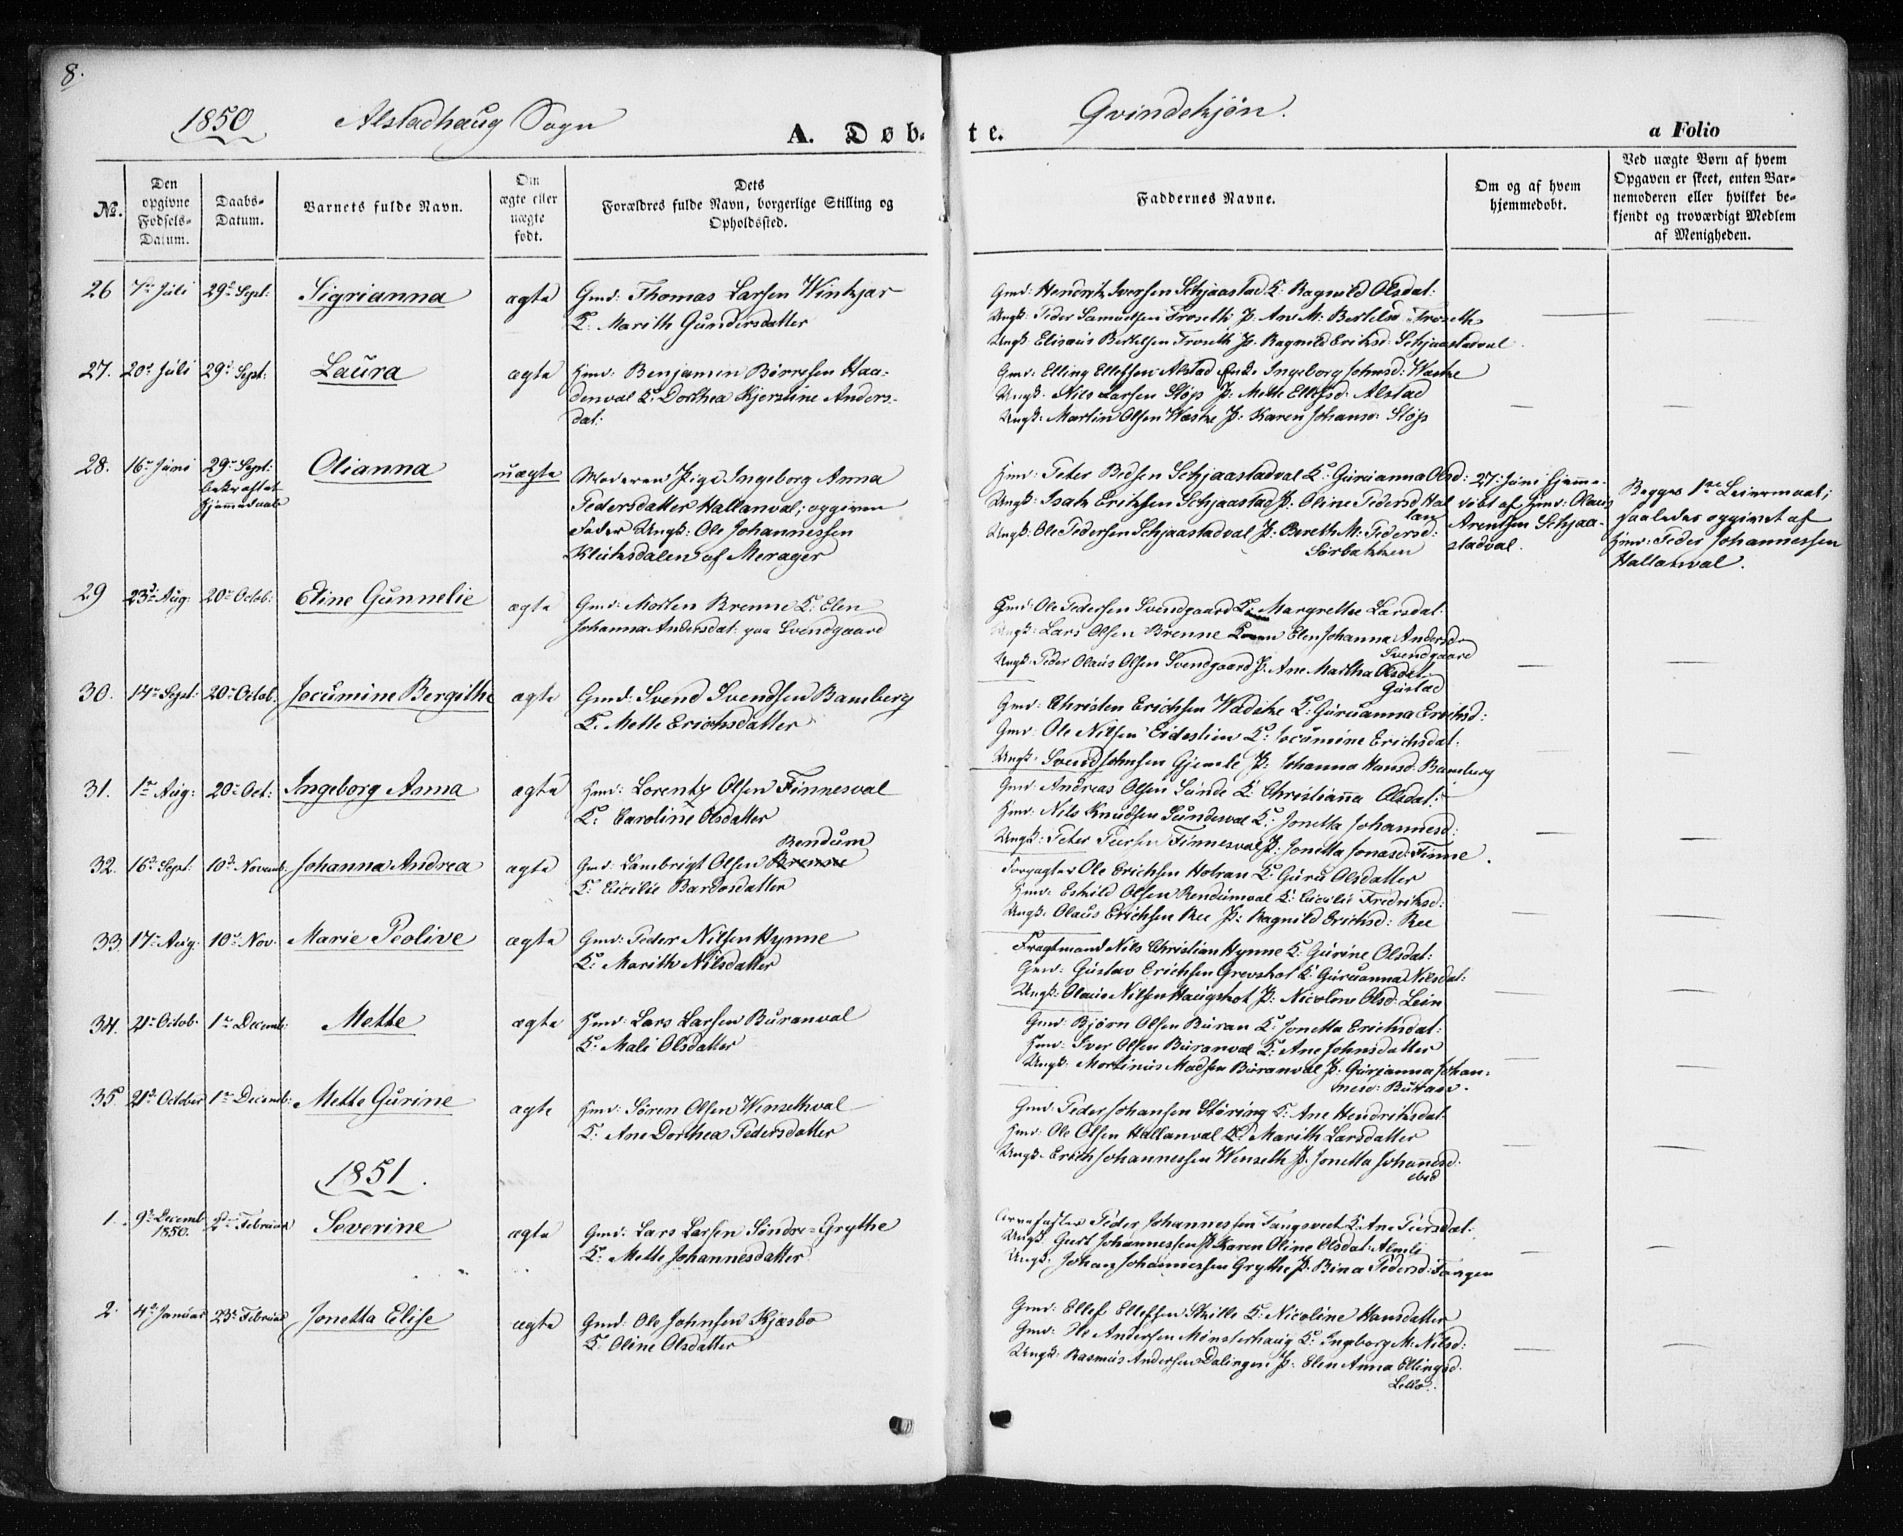 8.
1850 Alstadhaug Sogn A. Døbte. Qvindekjøn. a Folio
No.
Den opgivne Fødsels-Datum.
Daabs-Datum.
Barnets fulde Navn.
Om ægte eller uægte født.
Dets Forældres fulde Navn, borgerlige Stilling og Opholdssted.
Faddernes Navne.
Om og af hvem hjemmedøbt.
Ved uægte Børn af hvem Opgaven er skeet, enten Barnemoderen eller hvilket bekjendt og troværdigt Medlem af Menigheden.
26 7de Juli 29de Sept: Sigrianna ægte Gmd: Thomas Larsen Winkjar
K: Marith Gundersdatter
Gmd: Hendrik Iversen Schjaastad K: Ragnild Olsdat:
Ungk: Peder Samuelsen Froseth P: Ane M: Bertelsd: Froseth
Ungk: Elisæus Bertelsen Froseth P: Ragnild Eriksd: Schjaastadval
27. 20de Juli 29de Sept: Laura ægte Hmd: Benjamin Børresen Haa-
denval K: Dorthea Kjerstine Anders-
dat:
Gmd: Elling Ellefsen Alstad Enke Ingeborg Johnsd: Waske
Ungk: Nils Larsen Støp P: Mette Ellefsd: Alstad
Ungk: Martin Olsen Waske P: Karen Johansd: Støp
28. 16de Juni 29de Sept: bekræftet Hjemmedaab Olianna uægte Moderen Pige Ingeborg Anna
Pedersdatter Hallanval; opgiven
Fader Ungk: Ole Johannessen
Kluksdalen af Merager
Hmd: Peter Bedsen Schjaastadval K: Gurianna Olsd:
Ungk: Isak Eriksen Schjaastad P: Oline Pedersd: Hal
lan
Ungk: Ole Pedersen Schjaastadval P: Bereth M: Pedersd:
Sørbakken
27: Juni hjemme-
døbt af Hmd: Olaus
Arentsen Schjaa-
stadval.
Begges 1ste Leiermaal;
saaledes opgivet af
Hmd: Peder Johannessen
Hallanval.
29 23de Aug: 20de Octob: Eline Gunnelie ægte Gmd: Morten Brenne K: Elen
Johanna Andersdat: paa Svendgaard
Hmd: Ole Pedersen Svendgaard K: Margrethe Larsdat:
Ungk: Lars Olsen Brenne Konen Elen Johanna Andersd
Svendgaard
Ungk: Peder Olaus Olsen Svendgaard P: Ane Martha Olsdat
Gustad
30. 14de Sept: 20de Octob. Jocumine Bergithe ægte Gmd: Svend Svendsen Bamberg
K: Mette Erichsdatter
Gmd: Christen Erichsen Wadske K: Gurianna Erichsd:
Gmd: Ole Nilsen Eidestien K: Jocumine Erichsdat:
Ungk: Svend Johnsen Gjemle P: Johanna Hansd: Bamberg
31. 1ste Aug: 20de Oct: Ingeborg Anna ægte Hmd: Lorentz Olsen Finnesval
K: Caroline Olsdatter
Gmd: Andreas Olsen Sunde K: Christianna Olsdat:
Hmd: Nils Knudsen Sundesval K: Jonetta Johannesd:
Ungk: Peter Peersen Finnesval P: Jonetta Jonasd: Finne.
32. 16de Sept: 10de Novemb: Johanna Andrea ægte Gmd: Lambrigt Olsen Brenne Rendum
K: Cicilie Bardosdatter
Forpagter Ole Erichsen Hotran K: Guru Olsdatter
Hmd: Eskild Olsen Rendumval K: Cicilie Fredriksd:
Ungk: Olaus Erichsen Ree P: Ragnild Erichsd: Ree
33. 17de Aug: 10de Nov. Marie Peolive ægte Gmd: Peder Nilsen Hynne
K: Marith Nilsdatter
Fragtmand Nils Christian Hynne K: Gurine Olsdat:
Gmd: Gustav Erichsen Grevskot K: Gurianna Nilsdat:
Ungk: Olaus Nilsen Haugskot P: Nicoline Olsd: Lein
34. 21de Octob. 1ste Decemb: Mette ægte Hmd: Lars Larsen Buranval
K: Mali Olsdatter
Gmd: Bjørn Olsen Buran K: Jonetta Erichsdat:
Hmd: Iver Olsen Buranval K: Ane Johnsdatter
Ungk: Mortinus Madsen Buranval P: Gurianna Johan-
nesd: Buran.
35. 21de October 1ste Decemb: Mette Gurine ægte Hmd: Søren Olsen Winsethval
K: Ane Dorthea Pedersdatter
Gmd: Peder Johansen Støring K: Ane Hendriksdat:
Hmd: Ole Olsen Hallanval K: Marith Larsdatter
Ungk: Erich Johannessen Winseth P: Jonetta Johannesd.
ibid
1851.
1. 9de Decemb 1850. 2den Februar Severine ægte Gmd: Lars Larsen Søndre=Grythe
K: Mette Johannesdatter
Peder Johannessen Tangvedt K: Ane Peersdat:
Ungk: Gurt Johannessen P: Karen Oline Olsdat: Aimli
Ungk: Johan Johannessen Grythe P: Bina Pedersd: Tangen
2. 4de Januar 23de Februar Jonetta Elise ægte Gmd: Ole Johnsen Kjæsbo
K: Oline Olsdatter
Gmd: Ellef Ellefsen Skille K: Nicoline Hansdatter
Gmd: Ole Andersen Mønsterhaug K: Ingeborg M: Nilsd:
Ungk: Rasmus Andersen Dalingen P: Elen Anna Ellingsd: